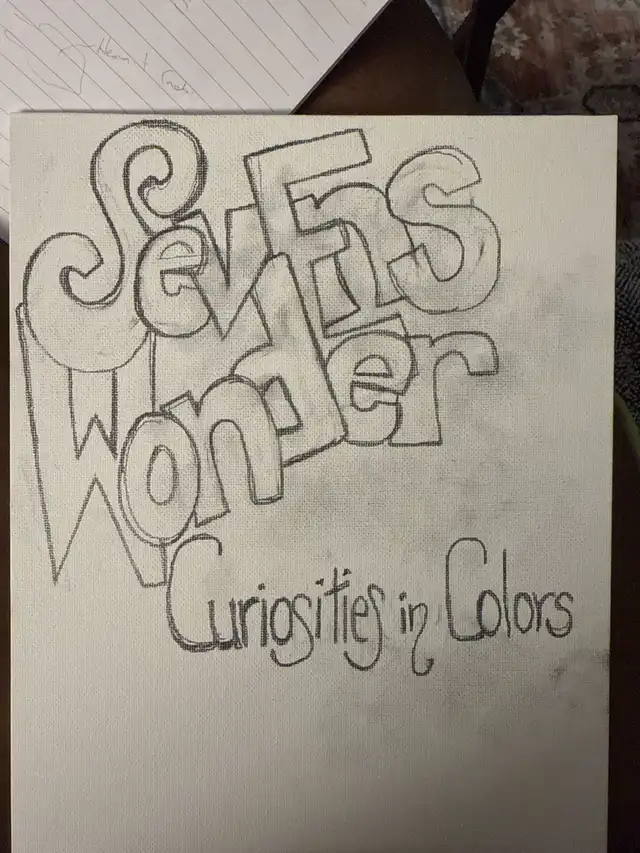 SevEns
Wonder
Curiosities in Colors